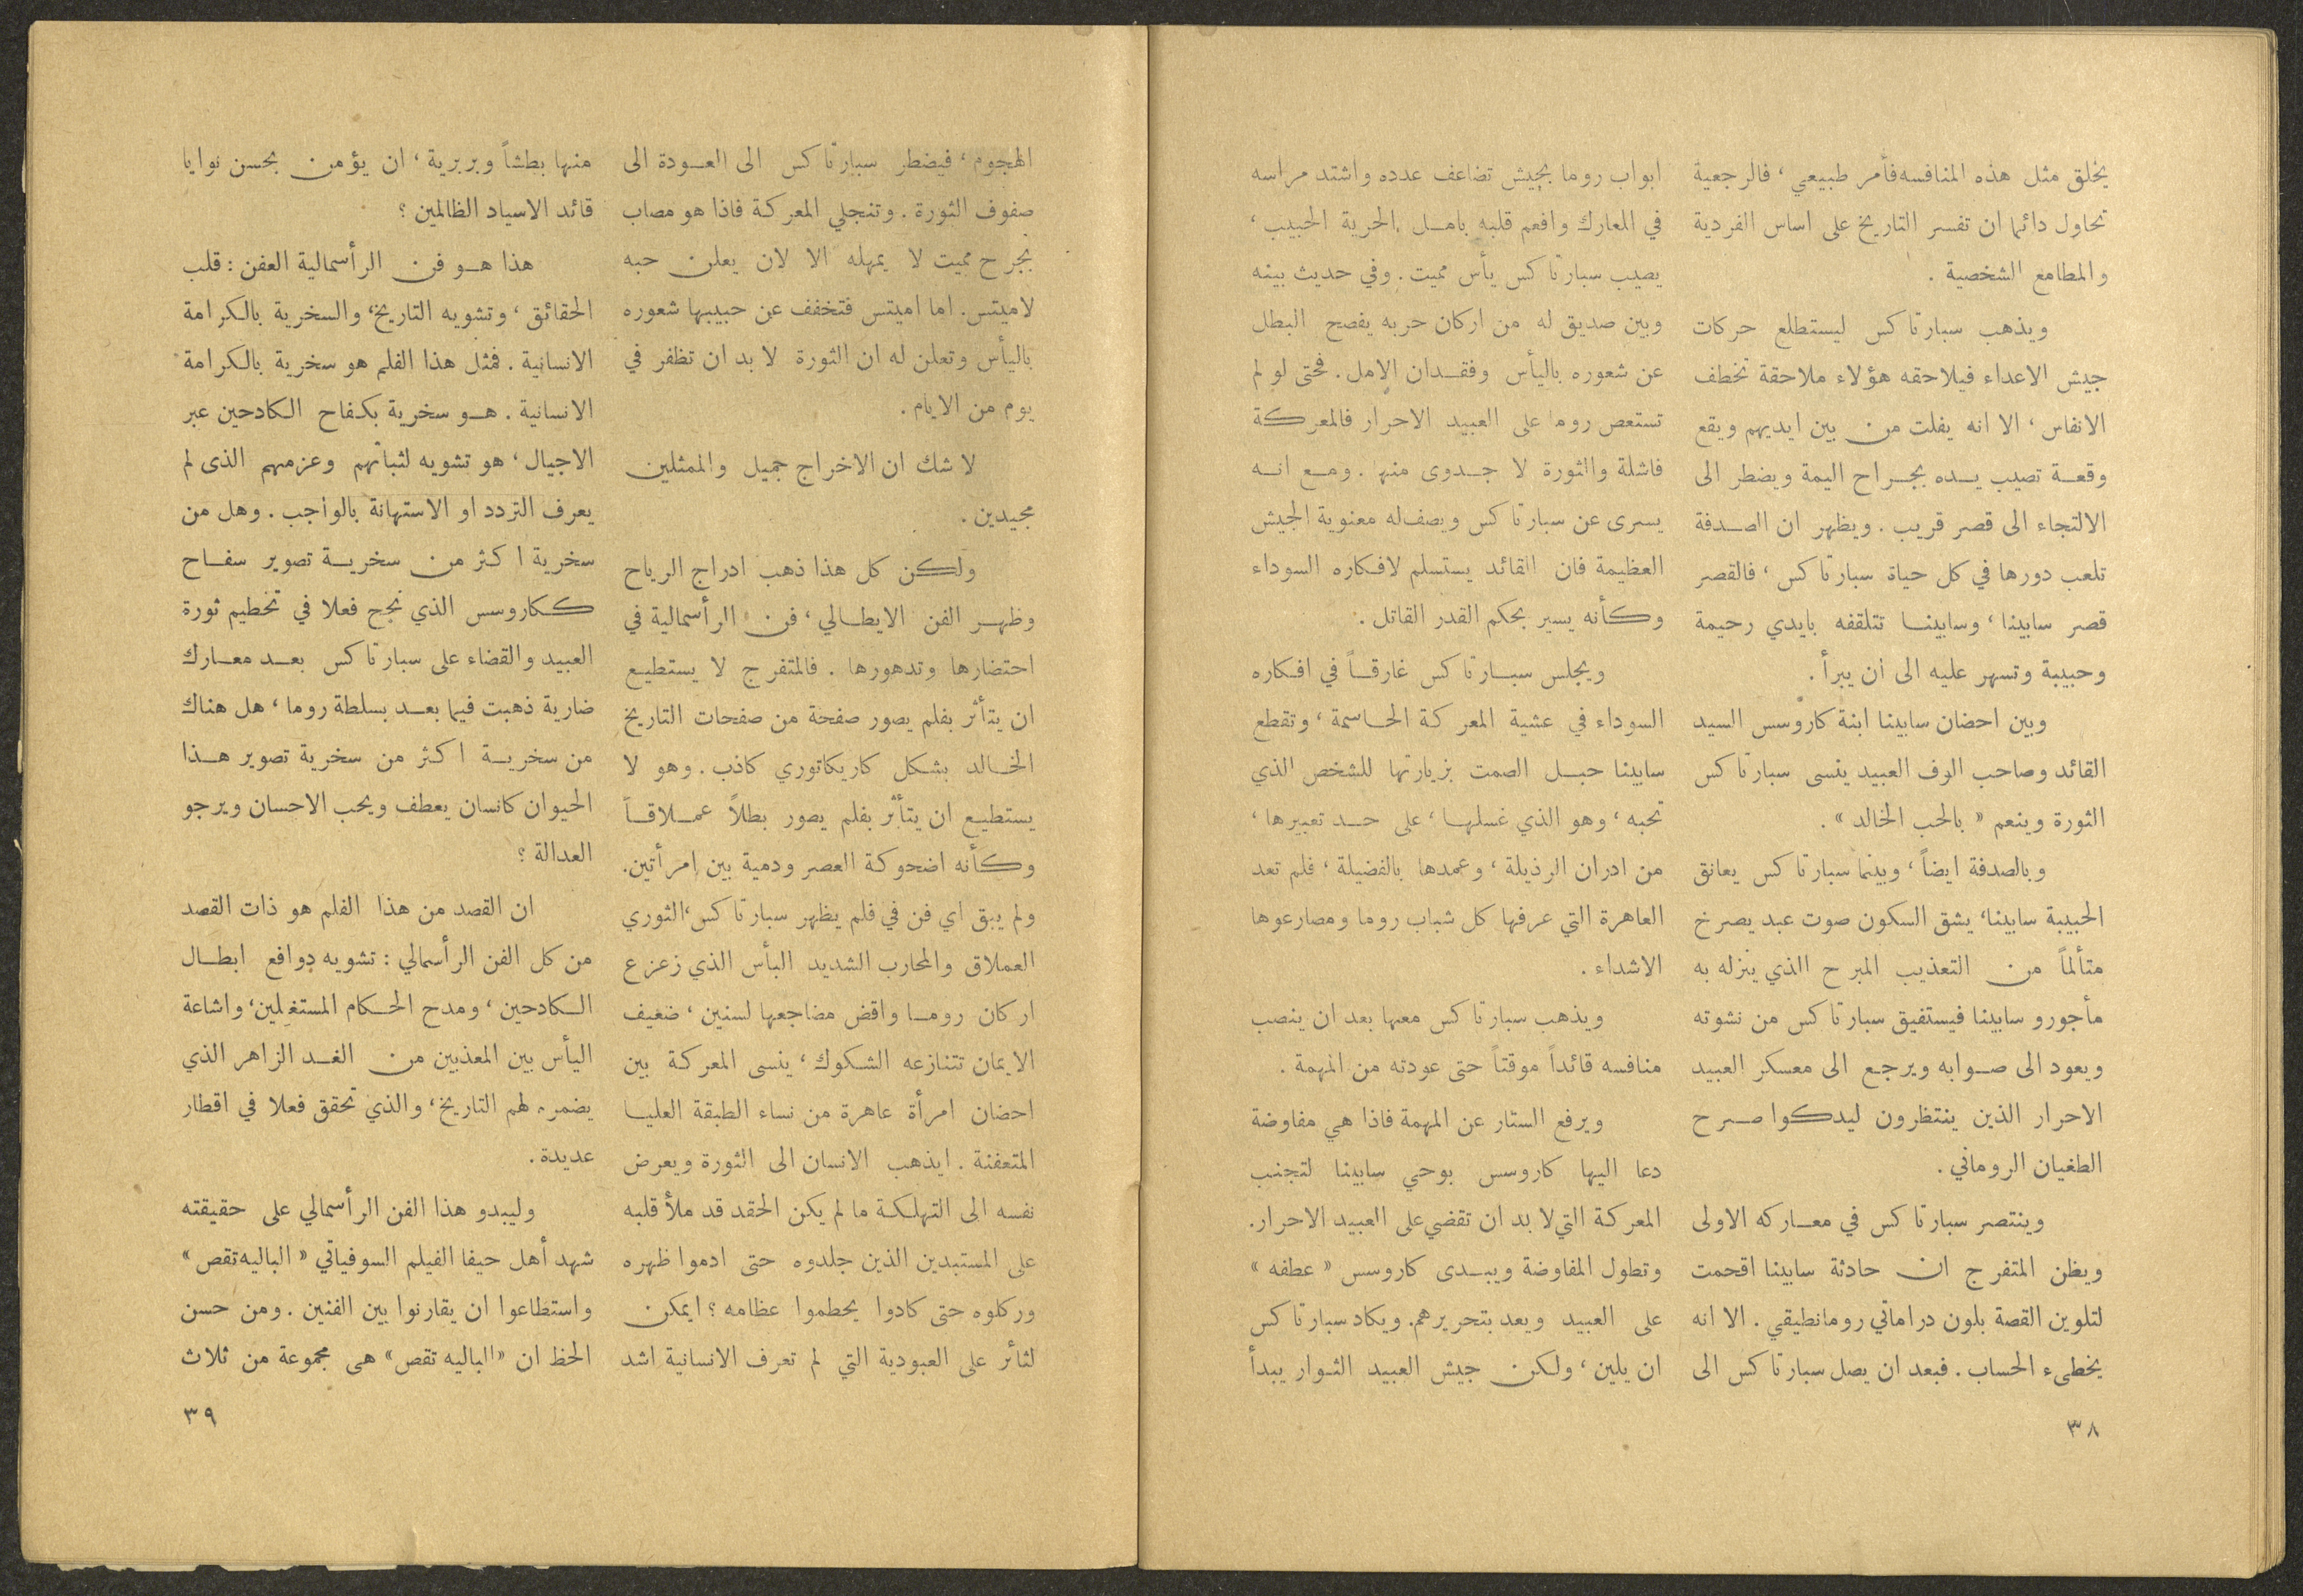 يخلق مثل هذه المنافسه فأمر طبيعي ، فالرجعية
تحاول دائما ان تفسر التاريخ على اساس الفردية
والمطامع الشخصية .
ويذهب سبارتاكس ليستطلع حركات
جيش الاعداء فيلاحقه هؤلاء ملاحقة تخطف
الانفاس ، الا انه يفلت من بين ايديهم ويقع
وقعة تصيب يده بجراح اليمة ويضطر الى
الالتجاء الى قصر قريب . ويظهر ان الصدفة
تلعب دورها في كل حياة سبارتاكس ، فالقصر
قصر سابينا ، وسابينا تتلقفه بايدي رحيمة
وحبيبة وتسهر عليه الى ان يبرأ .
وبين احضان سابينا ابنة كاروسس السيد
القائد وصاحب الوف العبيد ينسى سبارتاكس
الثورة وينعم « بالحب الخالد » .
وبالصدفة ايضاً ، وبينما سبارتاكس يعانق
الحبيبة سابينا ، يشق السكون صوت عبد يصرخ
متألماً من التعذيب المبرح الذي ينزله به
مأجورو سابينا فيستفيق سبارتاكس من نشوته
ويعود الى صوابه ويرجع الى معسكر العبيد
الاحرار الذين ينتظرون ليدكوا صرح
الطغيان الروماني .
وينتصر سبارتاكس في معاركه الاولى
ويظن المتفرج ان حادثة سابينا اقحمت
لتلوين القصة بلون دراماتي رومانطيقي . الا انه
يخطىء الحساب . فبعد ان يصل سبارتاكس الى
ابواب روما بجيش تضاعف عدده واشتد مراسه
في المعارك وافعم قلبه بامل الحرية الحبيب ،
يصيب سبارتاكس يأس مميت . وفي حديث بينه
وبين صديق له من اركان حربه يفصح البطل
عن شعوره باليأس وفقدان الامل . فحتى لو لم
تستعص روما على العبيد الاحرار فالمعركة
فاشلة والثورة لا جدوى منها . ومع انه
يسرى عن سبارتاكس ويصف له معنوية الجيش
العظيمة فان القائد يستسلم لافكاره السوداء
وكأنه يسير بحكم القدر القاتل .
ويجلس سبارتاكس غارقاً في افكاره
السوداء في عشية المعركة الحاسمة ، وتقطع
سابينا حبل الصمت بزيارتها للشخص الذي
تحبه ، وهو الذي غسلها ، على حد تعبيرها ،
من ادران الرذيلة ، وعمدها بالفضيلة ، فلم تعد
العاهرة التي عرفها كل شباب روما ومصارعوها
الاشداء .
ويذهب سبارتاكس معها بعد ان ينصب
منافسه قائداً موقتاً حتى عودته من المهمة .
ويرفع الستار عن المهمة فاذا هي مفاوضة
دعا اليها كاروسس بوحي سابينا لتجنب
المعركة التي لا بد ان تقضي على العبيد الاحرار .
وتطول المفاوضة ويبدى كاروسس « عطفه »
على العبيد ويعد بتحريرهم . ويكاد سبارتاكس
ان يلين ، ولكن جيش العبيد الثوار يبدأ
٣٨
الهجوم ، فيضطر سبارتاكس الى العودة الى
صفوف الثورة . وتنجلي المعركة فاذا هو مصاب
بجرح مميت لا يمهله الا لان يعلن حبه
لاميتس . اما اميتس فتخفف عن حبيبها شعوره
باليأس وتعلن له ان الثورة لا بد ان تظفر في
يوم من الايام .
لا شك ان الاخراج جميل والممثلين
مجيدين .
ولكن كل هذا ذهب ادراج الرياح
وظهر الفن الايطالي ، فن الرأسمالية في
احتضارها وتدهورها . فالمتفرج لا يستطيع
ان يتأثر بفلم يصور صفحة من صفحات التاريخ
الخالد بشكل كاريكاتوري كاذب . وهو لا
يستطيع ان يتأثر بفلم يصور بطلاً عملاقاً
وكأنه اضحوكة العصر ودمية بين إمرأتين .
ولم يبق اي فن في فلم يظهر سبارتاكس ، الثوري
العملاق والمحارب الشديد البأس الذي زعزع
اركان روما واقض مضاجعها لسنين ، ضعيف
الايمان تتنازعه الشكوك ، ينسى المعركة بين
احضان امرأة عاهرة من نساء الطبقة العليا
المتعفنة . ايذهب الانسان الى الثورة ويعرض
نفسه الى التهلكة ما لم يكن الحقد قد ملأ قلبه
على المستبدين الذين جلدوه حتى ادموا ظهره
وركلوه حتى كادوا يحطموا عظامه ؟ ايمكن
لثائر على العبودية التي لم تعرف الانسانية اشد
منها بطشاً وبربرية ، ان يؤمن بحسن نوايا
قائد الاسياد الظالمين ؟
هذا هو فن الرأسمالية العفن : قلب
الحقائق ، وتشويه التاريخ ، والسخرية بالكرامة
الانسانية . فمثل هذا الفلم هو سخرية بالكرامة
الانسانية . هو سخرية بكفاح الكادحين عبر
الاجيال ، هو تشويه لثباتهم وعزمهم الذى لم
يعرف التردد او الاستهانة بالواجب . وهل من
سخرية اكثر من سخرية تصوير سفاح
ككاروسس الذي نجح فعلا في تحطيم ثورة
العبيد والقضاء على سبارتاكس بعد معارك
ضارية ذهبت فيما بعد بسلطة روما ، هل هناك
من سخرية اكثر من سخرية تصوير هذا
الحيوان كانسان يعطف ويحب الاحسان ويرجو
العدالة ؟
ان القصد من هذا الفلم هو ذات القصد
من كل الفن الرأسمالي : تشويه دوافع ابطال
الكادحين ، ومدح الحكام المستغلين ، واشاعة
اليأس بين المعذبين من الغد الزاهر الذي
يضمره لهم التاريخ ، والذي تحقق فعلا في اقطار
عديدة .
وليبدو هذا الفن الرأسمالي على حقيقته
شهد أهل حيفا الفيلم السوفياتي « الباليه تقص »
واستطاعوا ان يقارنوا بين الفنين . ومن حسن
الحظ ان « الباليه تقص » هى مجموعة من ثلاث
٣٩